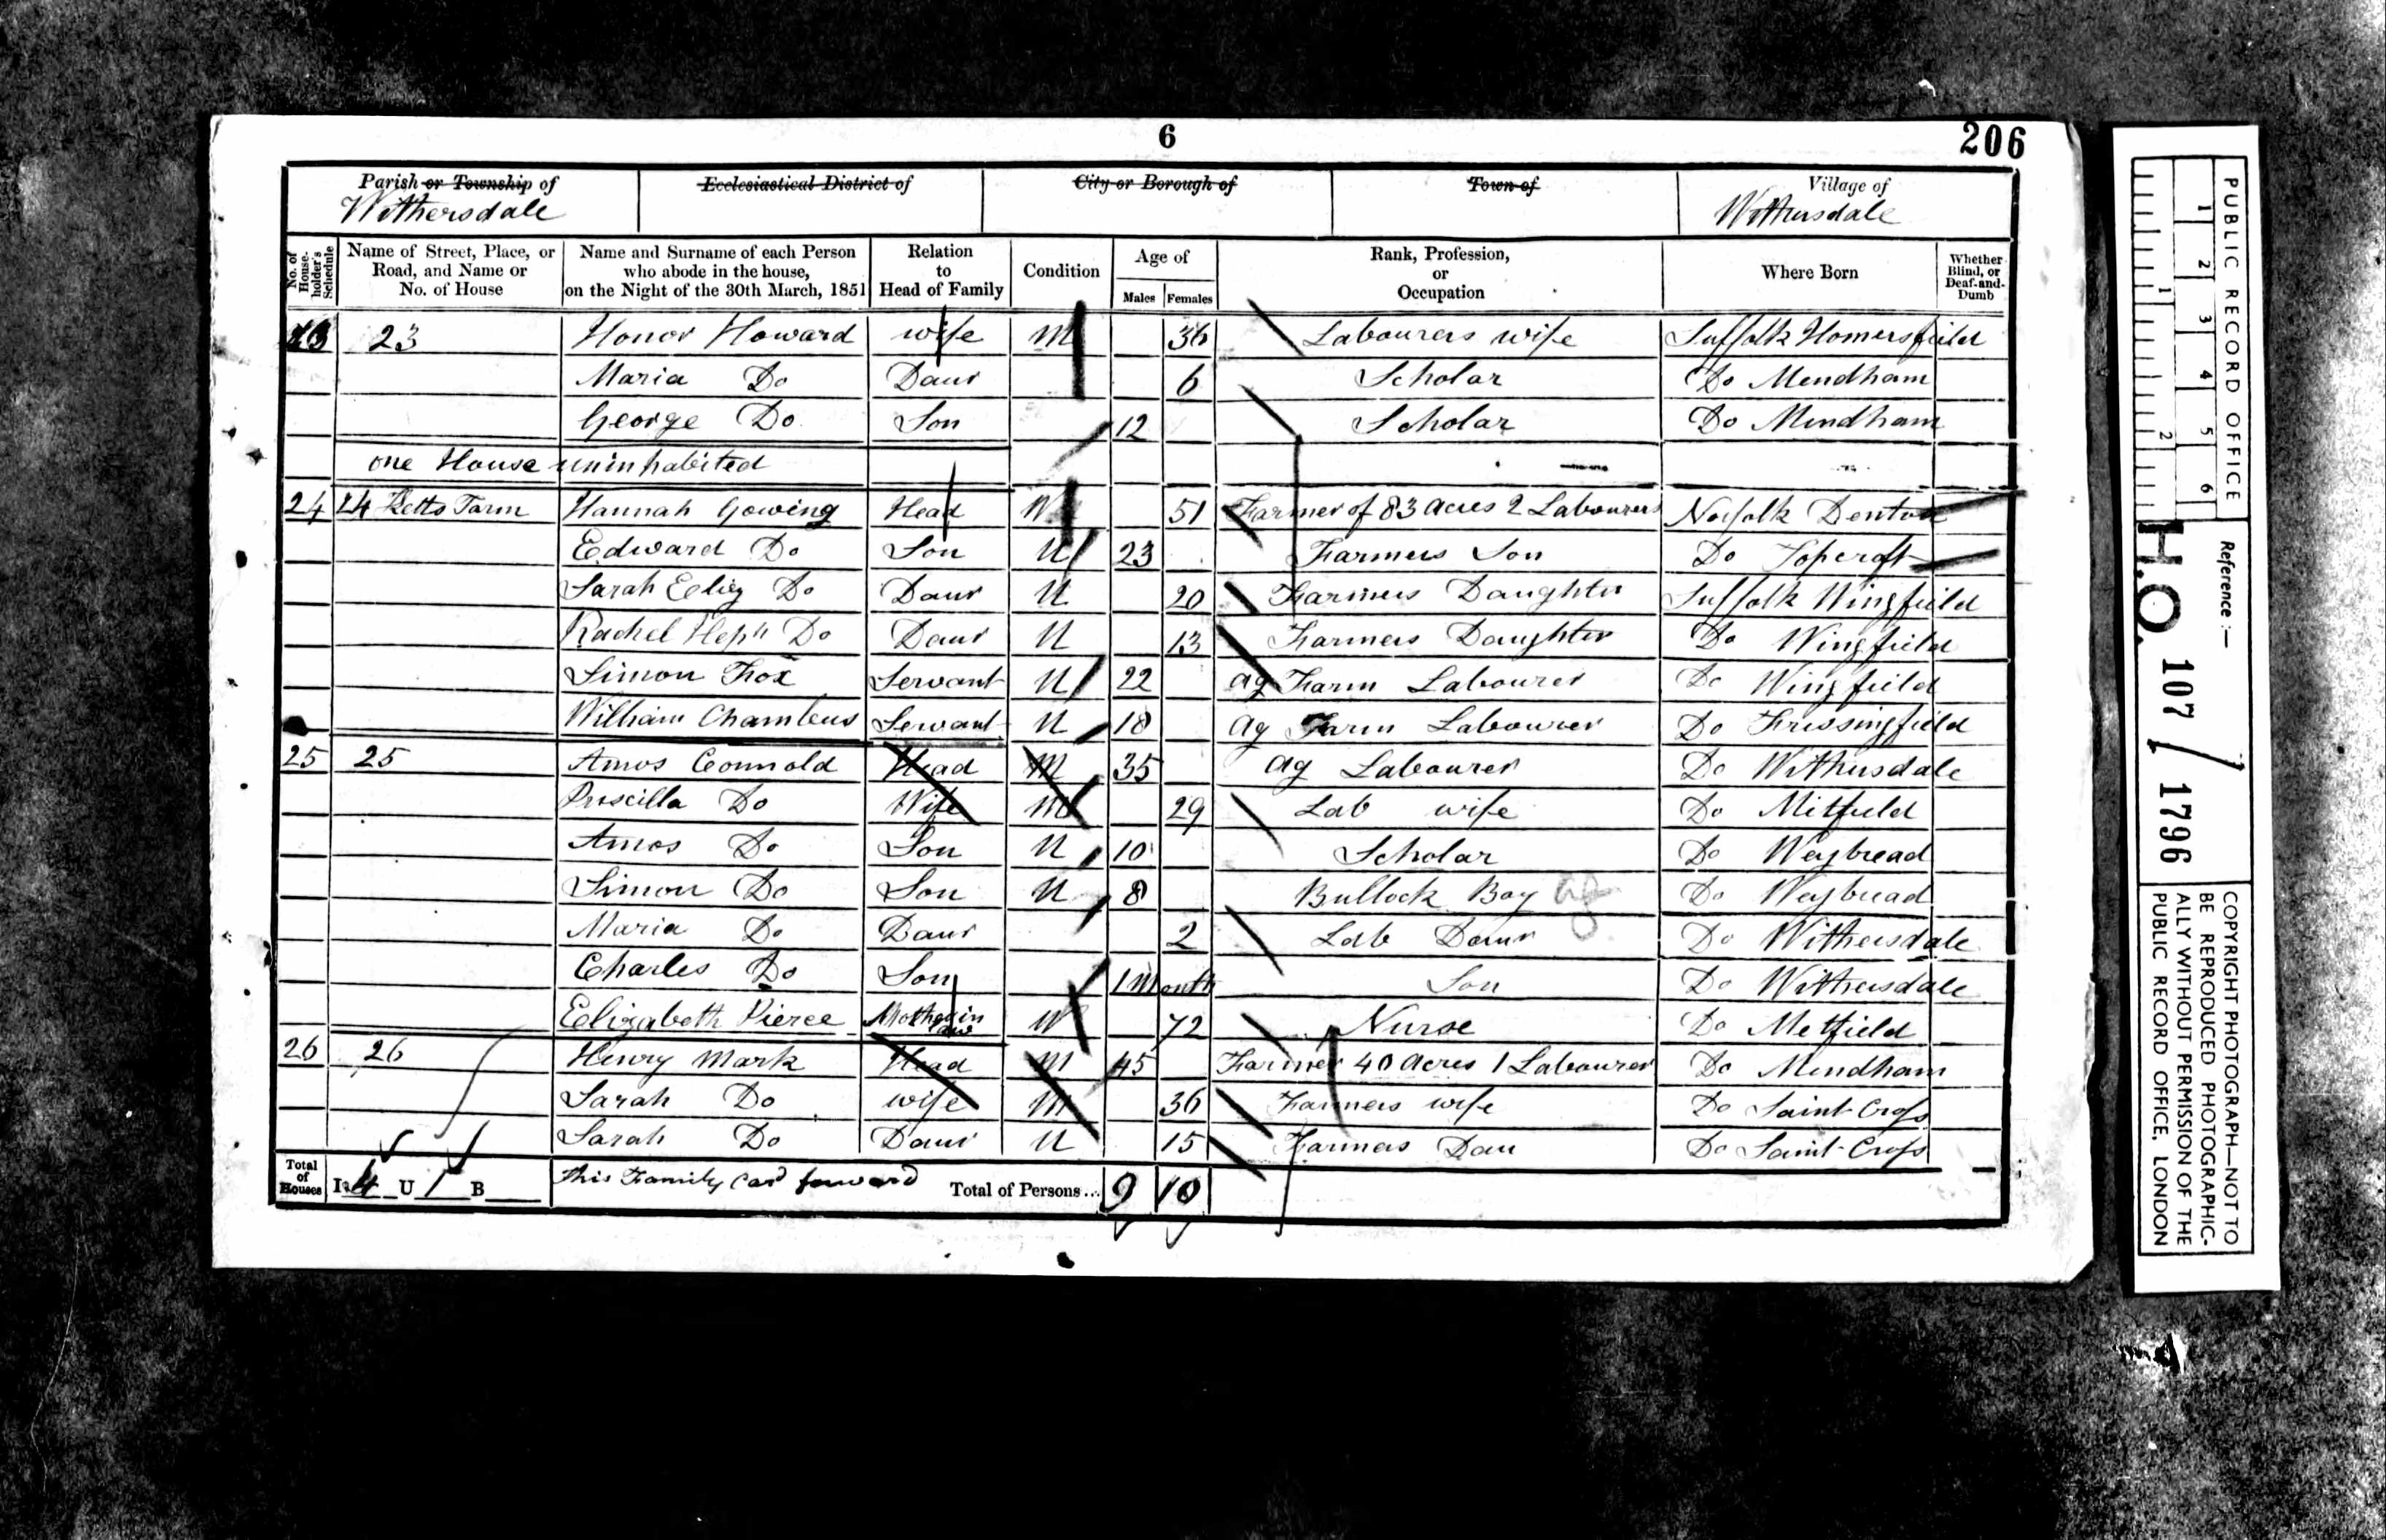 6
206
Parish or Township of Withersdale
Ecclesiastical District of
City or Borough of
Town of
Village of Withersdale
No. of House-holder's Schedule
Name of Street, Place, or Road, and Name or No. of House
Name and Surname of each Person who abode in the house, on the Night of the 30th March, 1851
Relation to Head of Family
Condition
Age of Males Females
Rank, Profession, or Occupation
Where Born
Whether Blind, or Deaf-and-Dumb
23 23 Honor Howard wife M 36 Labourers wife Suffolk Homersfield
Maria Do Daur 6 Scholar Do Mendham
George Do Son 12 Scholar Do Mendham
one House uninhabited
24 24 Ketts Farm Hannah Gowing Head W 51 Farmer of 83 acres 2 Labourers Norfolk Denton
Edward Do Son U 23 Farmers Son Do Topcroft
Sarah Do Daur U 20 Farmers Daughter Suffolk Wingfield
Rachel Do Daur U 13 Farmers Daughter Do Wingfield
Simon Fox Servant U 22 ag Farm Labourer Do Wingfield
William Chambers Servant U 18 ag Farm Labourer Do Fressingfield
25 25 Amos Connold Head M 35 ag Labourer Do Withersdale
Priscilla Do Wife M 29 Lab wife Do Mitfield
Amos Do Son U 10 Scholar Do Weybread
Simon Do Son U 8 Bullock Boy ag Do Weybread
Maria Do Daur 2 Lab Daur Do Withersdale
Charles Do Son 1 Month Son Do Withersdale
Elizabeth Pierce Mother in law W 72 Nurse Do Metfield
26 26 Henry Mark Head M 45 Farmer 40 acres 1 Labourer Do Mendham
Sarah Do wife M 36 Farmers wife Do Saint Cross
Sarah Do Daur U 15 Farmers Dau Do Saint Cross
Total of Houses I 4 U 1 B
this Family card forward
Total of Persons... 9 10
PUBLIC RECORD OFFICE
1 2 3 4 5 6
1 2
Reference :—
H.O. 107 / 1796
COPYRIGHT PHOTOGRAPH—NOT TO
BE REPRODUCED PHOTOGRAPHIC-
ALLY WITHOUT PERMISSION OF THE
PUBLIC RECORD OFFICE, LONDON